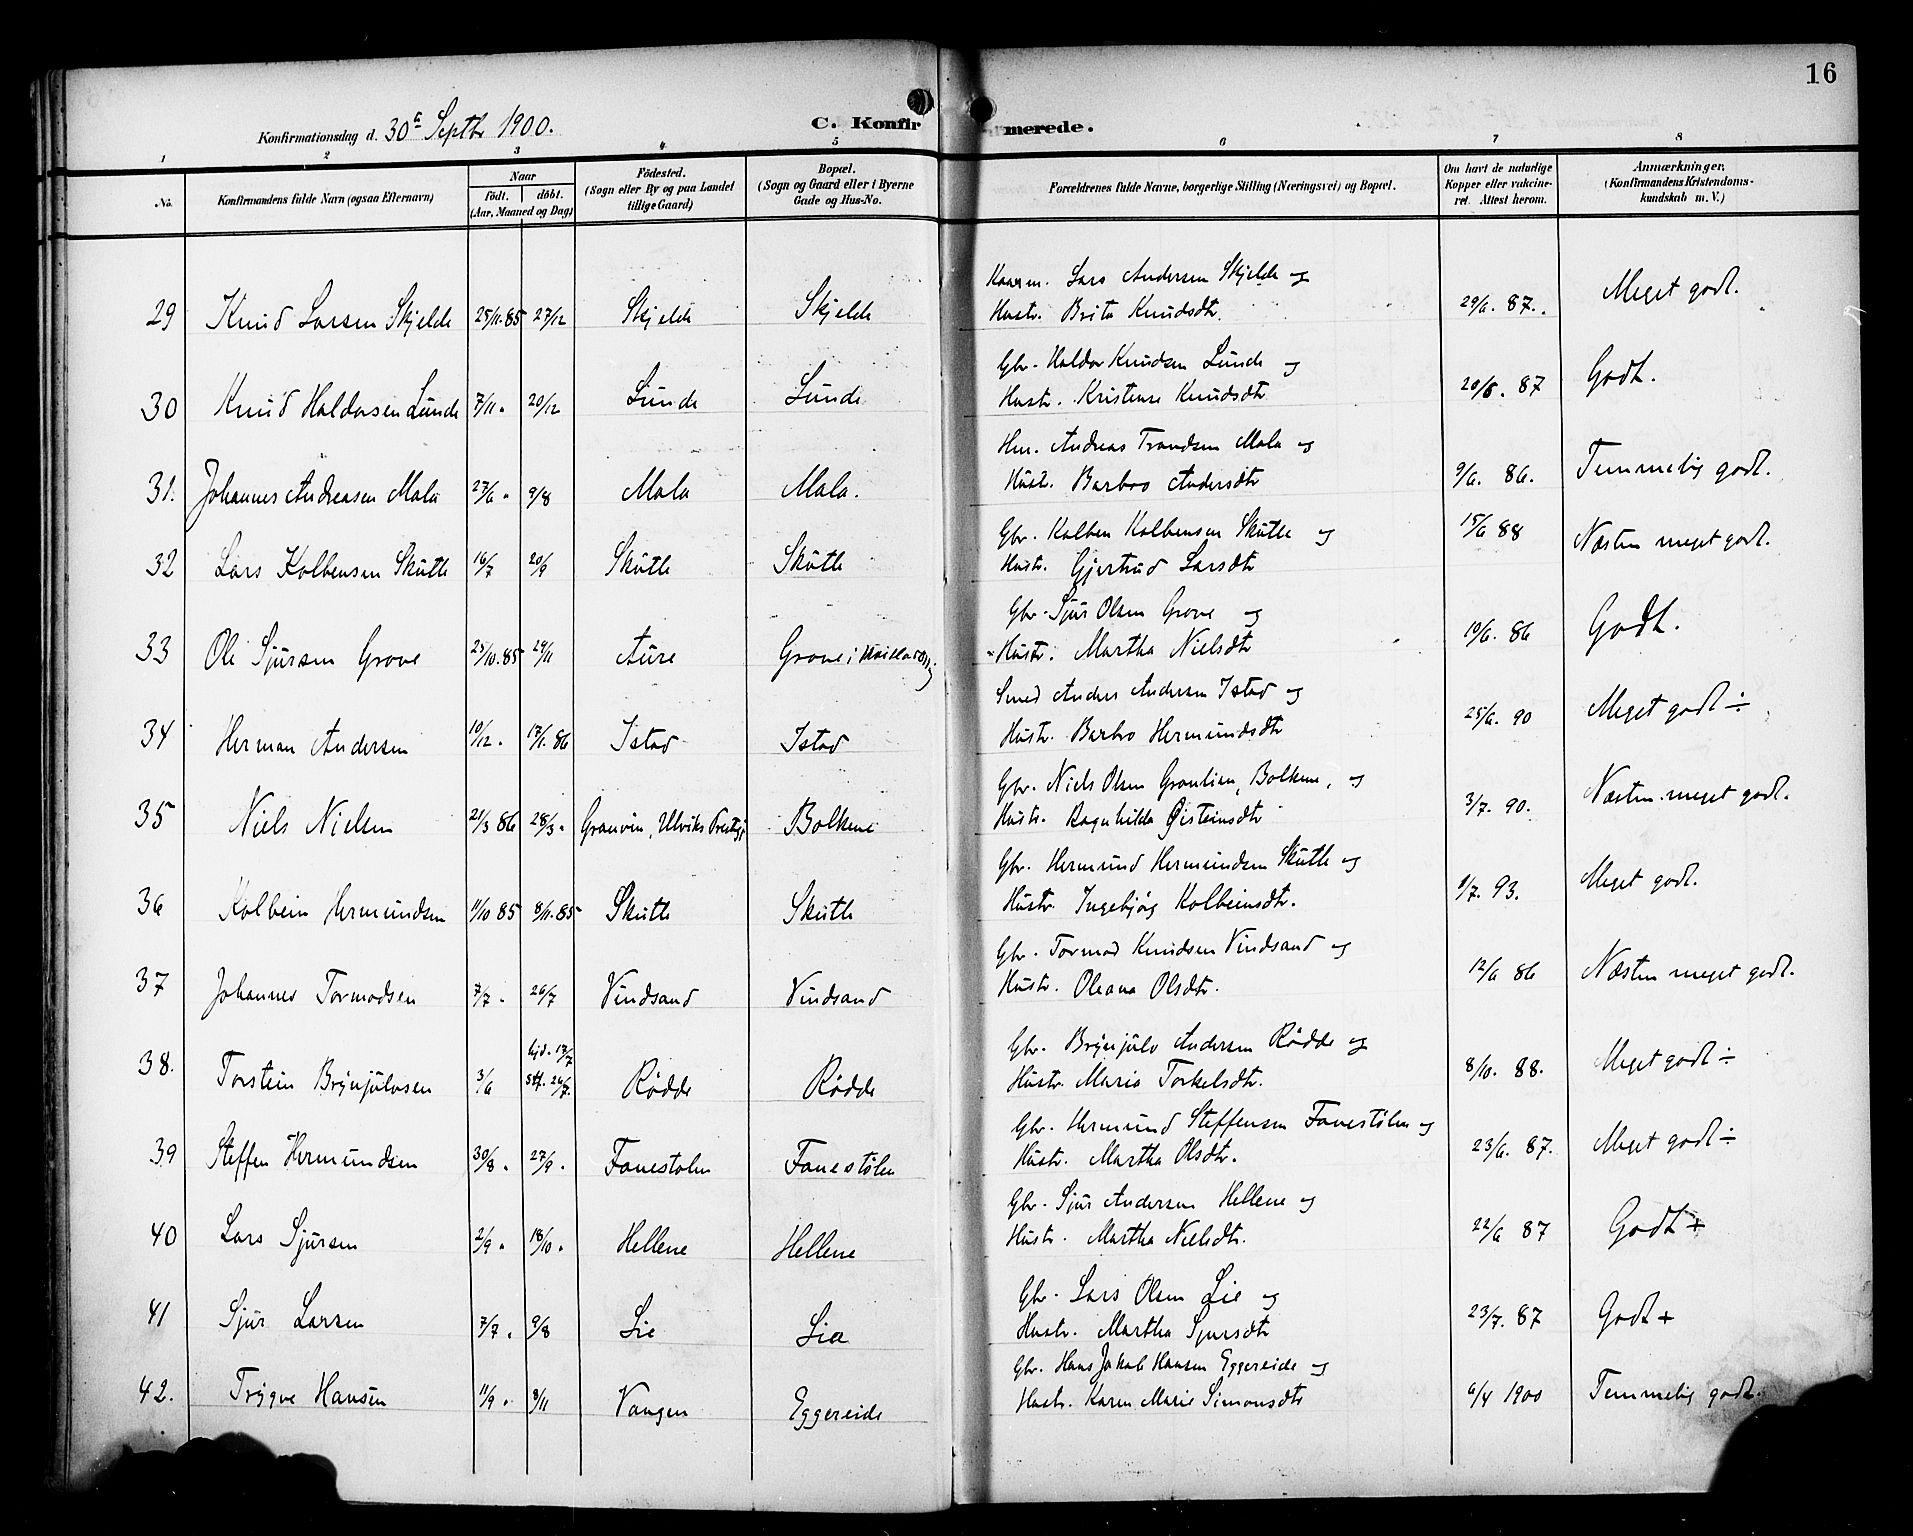 16
Konfirmationsdag d. 30te Septbr 1900.
C. Konfirmerede.
1 2 3 4 5 6 7 8
No. Konfirmandens fulde Navn (ogsaa Efternavn) Naar födt. döbt. (Aar, Maaned og Dag) Födested. (Sogn eller By og paa Landet tillige Gaard) Bopæl. (Sogn og Gaard eller i Byerne Gade og Hus-No. Forældrenes fulde Navne, borgerlige Stilling (Næringsvei) og Bopæl. Om havt de naturlige Kopper eller vakcineret. Attest herom. Anmærkninger. (Konfirmandens Kristendomskundskab m. V.)
Lars Andersen Skjelde og
29 Knud Larsen Skjelde 25/11.85 27/12 Skjelde Skjelde Hustr. Brita Knudsdtr. 29/6. 87. Meget godt.
Gbr. Haldor Knudsen Lunde og
30 Knud Haldorsen Lunde 7/11 " 20/12 Lunde Lunde Hustr. Kristense Knudsdtr 20/8. 87 Godt.
Hm. Andreas Trondsen Mala og
31. Johannes Andreasen Mala 27/6 " 9/8 Mala Mala. Hustr. Barbro Andersdtr 9/6. 86. Temmelig godt.
Gbr. Kolben Kolbensen Skutle og
32 Lars Kolbensen Skutle 16/7 20/9 Skutle Skutle Hustr. Gjertrud Larsdtr 15/6 88 Næsten meget godt.
Gbr. Sjur Olsen Grove og
33 Ole Sjursen Grove 25/10.85 29/11 Aure Grove i Hustr. Martha Nielsdtr 10/6. 86 Godt.
Smed Anders Andersen Istad og
34 Herman Andersen 10/12 " 17/1. 86 Istad Istad Hustr. Barbro Hermundsdtr 25/6. 90 Meget godt ÷
Gbr. Niels Olsen Grønlien, Bolkene, og
35 Niels Nielsen 21/3 86 28/3 " Granvin, Ulviks Prestegj. Bolkene Hustr. Ragnhilda Øisteinsdtr 3/7. 90. Næsten meget godt.
Gbr. Hermund Hermundsen Skutle og
36 Kolbein Hermundsen 11/10 85 8/11.85 Skutle Skutle Hustr. Ingebjøg Kolbeinsdtr. 1/7. 93. Meget godt.
Gbr. Tormod Knudsen Vindsand og
37 Johannes Tormodsen 7/7 " 26/7 Vindsand Vindsand Hustr. Oleana Olsdtr. 12/6 86 Næsten meget godt.
Gbr. Brynjulv Andersen Rødde og
38. Torstein Brynjulvsen 3/6 hjd. 17/7 stf. 26/7. Rødde Rødde Hustr. Maria Torkelsdtr. 8/10. 88. Meget godt ÷
Gbr. Hermund Steffensen Fonestølen og
39 Steffen Hermundsen 30/8 " 27/9 " Fonestolen Fonestølen Hustr. Martha Olsdtr. 23/6. 87. Meget godt ÷
Gbr. Sjur Andersen Hellene og
40 Lars Sjursen 2/9 " 18/10 " Hellene Hellene Hustr. Martha Nielsdtr. 22/6 87 Godt +
Gbr. Lars Olsen Lie og
41 Sjur Larsen 7/7 " 9/8 Lie Lia Hustr. Martha Sjursdtr 23/7. 87 Godt +
Gbr. Hans Jakob Hansen Eggereide og
42. Trygve Hansen 11/9 " 8/11 Vangen Eggereide Hustr. Karen Marie Simonsdtr 6/4 1900 Temmelig godt.